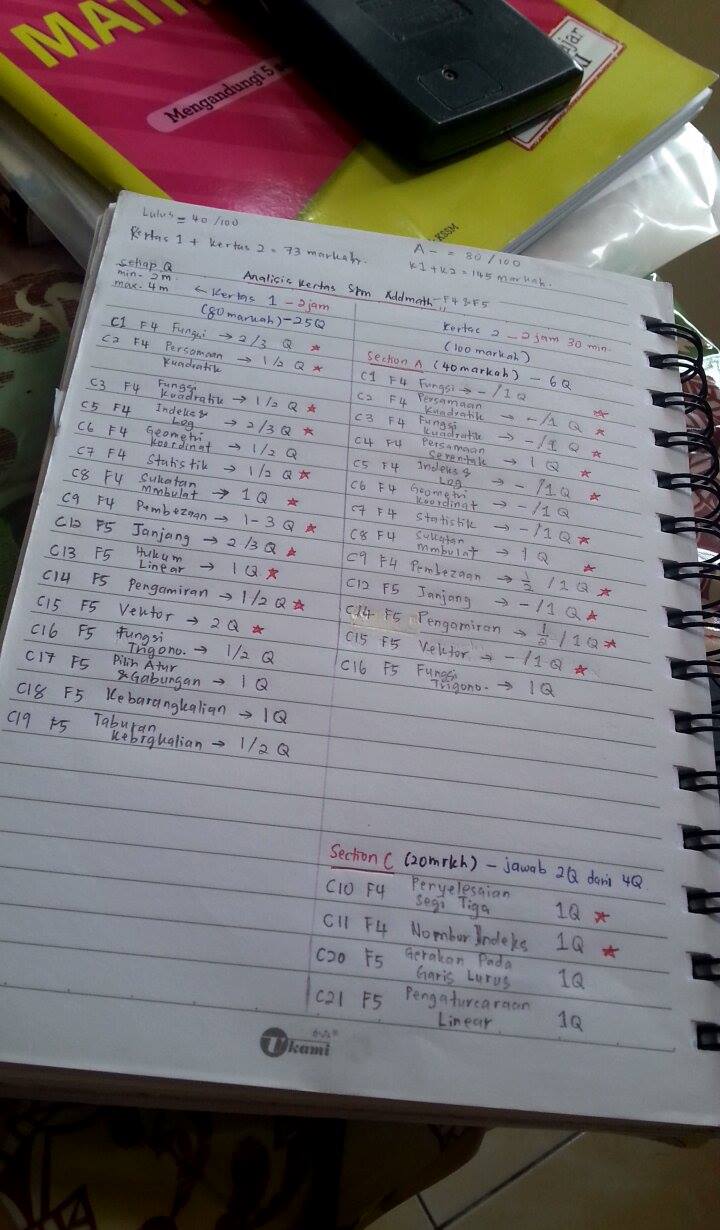 MATE
Mengandungi 5
KSSM
Lulus = 40/100
Kertas 1 + Kertas 2 = 73 markah.
A- = 80/100
K1 + K2 = 145 markah.
Setiap Q
min - 2m
max. 4m
Analisis Kertas Spm Addmath - F4 & F5
← Kertas 1 - 2 jam
(80 markah) - 25Q
C1 F4 Fungsi → 2/3 Q ★
C2 F4 Persamaan Kuadratik → 1/2 Q ★
C3 F4 Fungsi Kuadratik → 1/2 Q ★
C5 F4 Indeks & Log → 2/3 Q ★
C6 F4 Geometri Koordinat → 1/2 Q
C7 F4 Statistik → 1/2 Q ★
C8 F4 Sukatan mmbulat → 1 Q ★
C9 F4 Pembezaan → 1-3 Q ★
C12 F5 Janjang → 2/3 Q ★
C13 F5 Hukum Linear → 1 Q ★
C14 F5 Pengamiran → 1/2 Q ★
C15 F5 Vektor → 2 Q ★
C16 F5 Fungsi Trigono. → 1/2 Q
C17 F5 Pilih Atur & Gabungan → 1 Q
C18 F5 Kebarangkalian → 1 Q
C19 F5 Taburan Kebrgkalian → 1/2 Q
Kertas 2 - 2 jam 30 min.
(100 markah)
Section A (40 markah) - 6Q
C1 F4 Fungsi → -/1 Q ★
C2 F4 Persamaan Kuadratik → -/1 Q ★
C3 F4 Fungsi Kuadratik → -/1 Q ★
C4 F4 Persamaan Serentak → 1 Q ★
C5 F4 Indeks & Log → -/1 Q ★
C6 F4 Geometri Koordinat → -/1 Q
C7 F4 Statistik → -/1 Q ★
C8 F4 Sukatan mmbulat → 1 Q ★
C9 F4 Pembezaan → 1/2 / 1 Q ★
C12 F5 Janjang → -/1 Q ★
C14 F5 Pengamiran → 1/2 / 1 Q ★
C15 F5 Vektor → -/1 Q ★
C16 F5 Fungsi Trigono. → 1 Q
Section C (20mrkh) - jawab 2Q dari 4Q
C10 F4 Penyelesaian Segi Tiga 1Q ★
C11 F4 Nombor Indeks 1Q ★
C20 F5 Gerakan Pada Garis Lurus 1Q
C21 F5 Pengaturcaraan Linear 1Q
Ukami